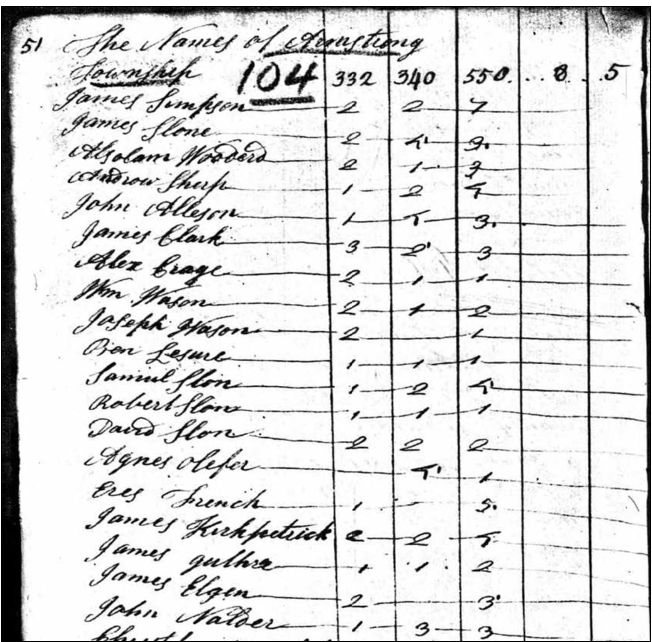 51 The Names of Armstrong
Township 104 332 340 550 . . 8 . . 5
James Simpson 2 2 7
James Slone 2 4 3.
Absolam Wooderd 2 1 3
Andrew Sherp 1 2 4
John Alleson 1 4 3.
James Clark 3 2 3
Alex Crage 2 1 1
Wm Wason 2 1 2
Joseph Wason 2 1
Ben Lesure 1 1 1
Samuel Slon 1 2 4
Robert Slon 1 1 1
David Slon 2 2 2
Agnes Olefer 4 1
Eres French 1 5.
James Kirkpetrick 2 2 4
James guthra 1 1 2
James Elgen 2 3
John Nalder 1 3 3